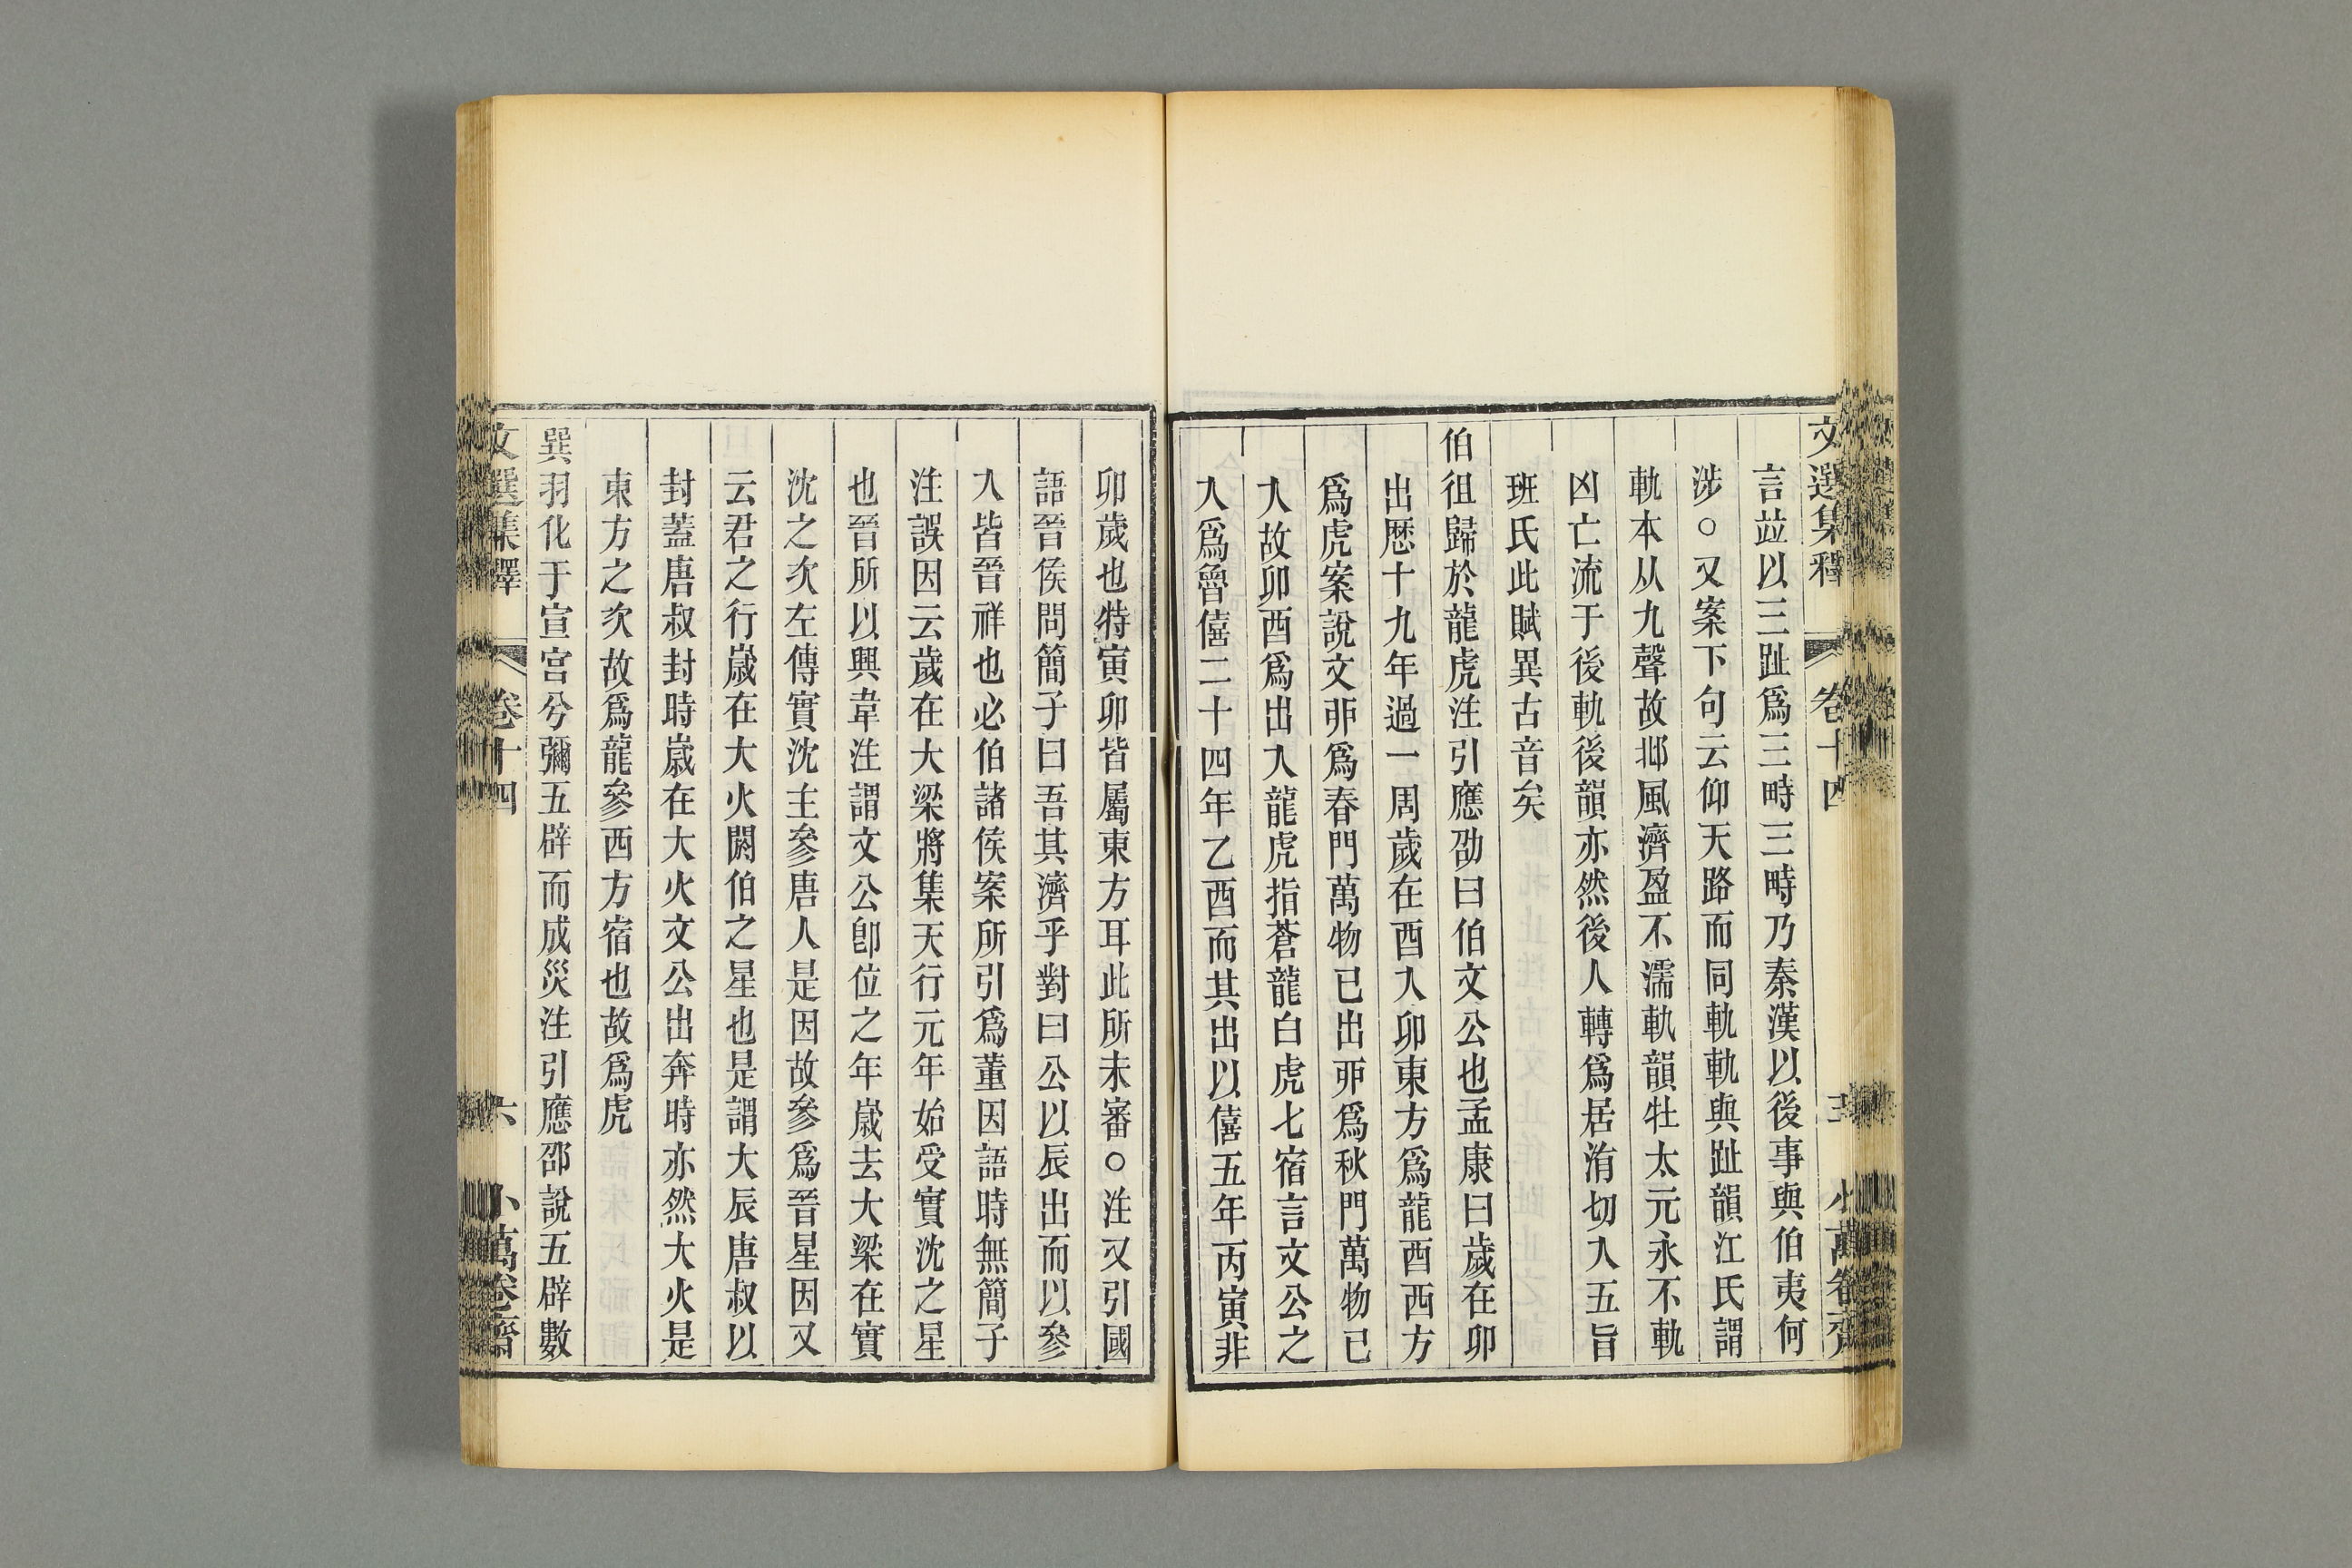 文選集釋 卷十四 五 小萬卷齋
言竝以三趾爲三畤三畤乃秦漢以後事與伯夷何
涉○又案下句云仰天路而同軌軌與趾韻江氏謂
軌本从九聲故邶風濟盈不濡軌韻牡太元永不軌
凶亡流于後軌後韻亦然後人轉爲居洧切入五旨
班氏此賦異古音矣
伯徂歸於龍虎注引應劭曰伯文公也孟康曰歲在卯
出歷十九年過一周歲在酉入卯東方爲龍酉西方
爲虎案說文丣爲春門萬物已出丣爲秋門萬物已
入故卯酉爲出入龍虎指蒼龍白虎七宿言文公之
入爲魯僖二十四年乙酉而其出以僖五年丙寅非
卯歲也特寅卯皆屬東方耳此所未審○注又引國
語晉侯問簡子曰吾其濟乎對曰公以辰出而以參
入皆晉祥也必伯諸侯案所引爲董因語時無簡子
注誤因云歲在大梁將集天行元年始受實沈之星
也晉所以興韋注謂文公卽位之年歲去大梁在實
沈之次左傳實沈主參唐人是因故參爲晉星因又
云君之行歲在大火閼伯之星也是謂大辰唐叔以
封蓋唐叔封時歲在大火文公出奔時亦然大火是
東方之次故爲龍參西方宿也故爲虎
巽羽化于宣宮兮彌五辟而成災注引應邵說五辟數
文選集釋 卷十四 六 小萬卷齋